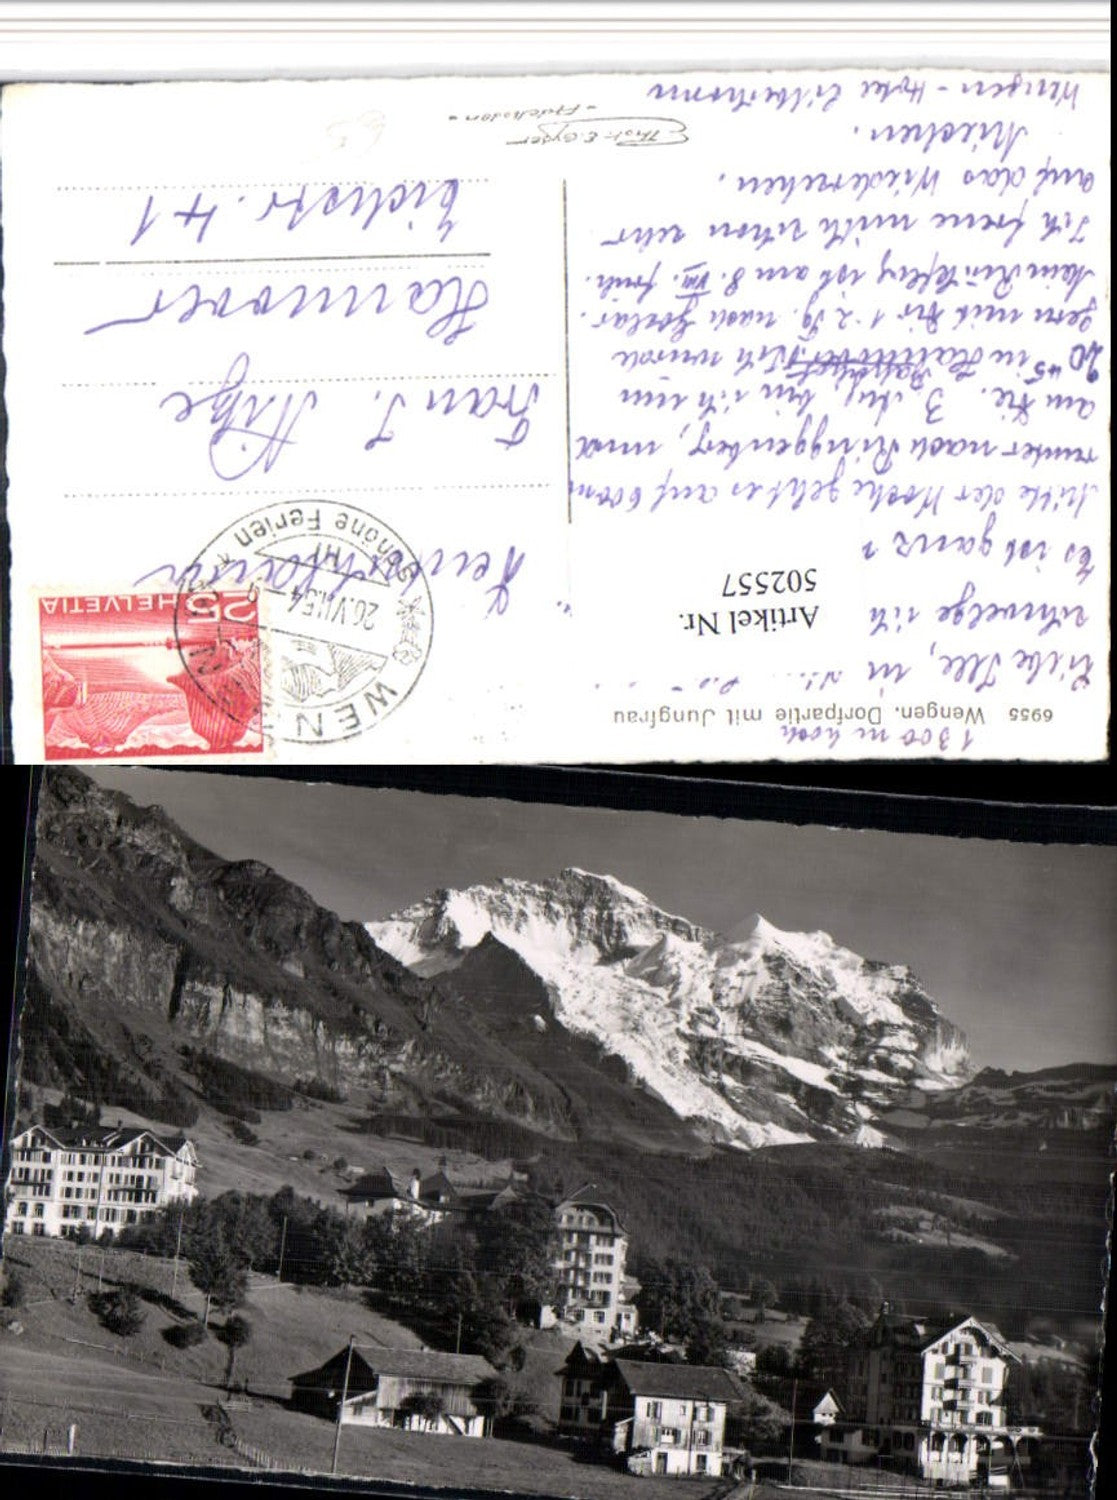 6955 Wengen. Dorfpartie mit Jungfrau
1300 m hoch
Liebe Ilse, in
schwelge ich
Es ist ganz
Mitte der Woche geht es auf 600 m
runter nach Ringgenberg, und
am Die. 3. Aug. bin ich um
20 45 in Hannover. Ich würde
gern mit Dir 1-2 Tg. nach Goslar.
Mein Rückflug ist am 8. VIII. früh.
Ich freue mich schon sehr
auf das Wiedersehen.
Miechen.
Wengen - Hotel Silberhorn
Artikel Nr.
502557
Phot. E. Gyger
- Adelboden -
WENGEN
26.VII.54
Schöne Ferien
25 HELVETIA
Frau I.
Hannover
Eichstr. 41